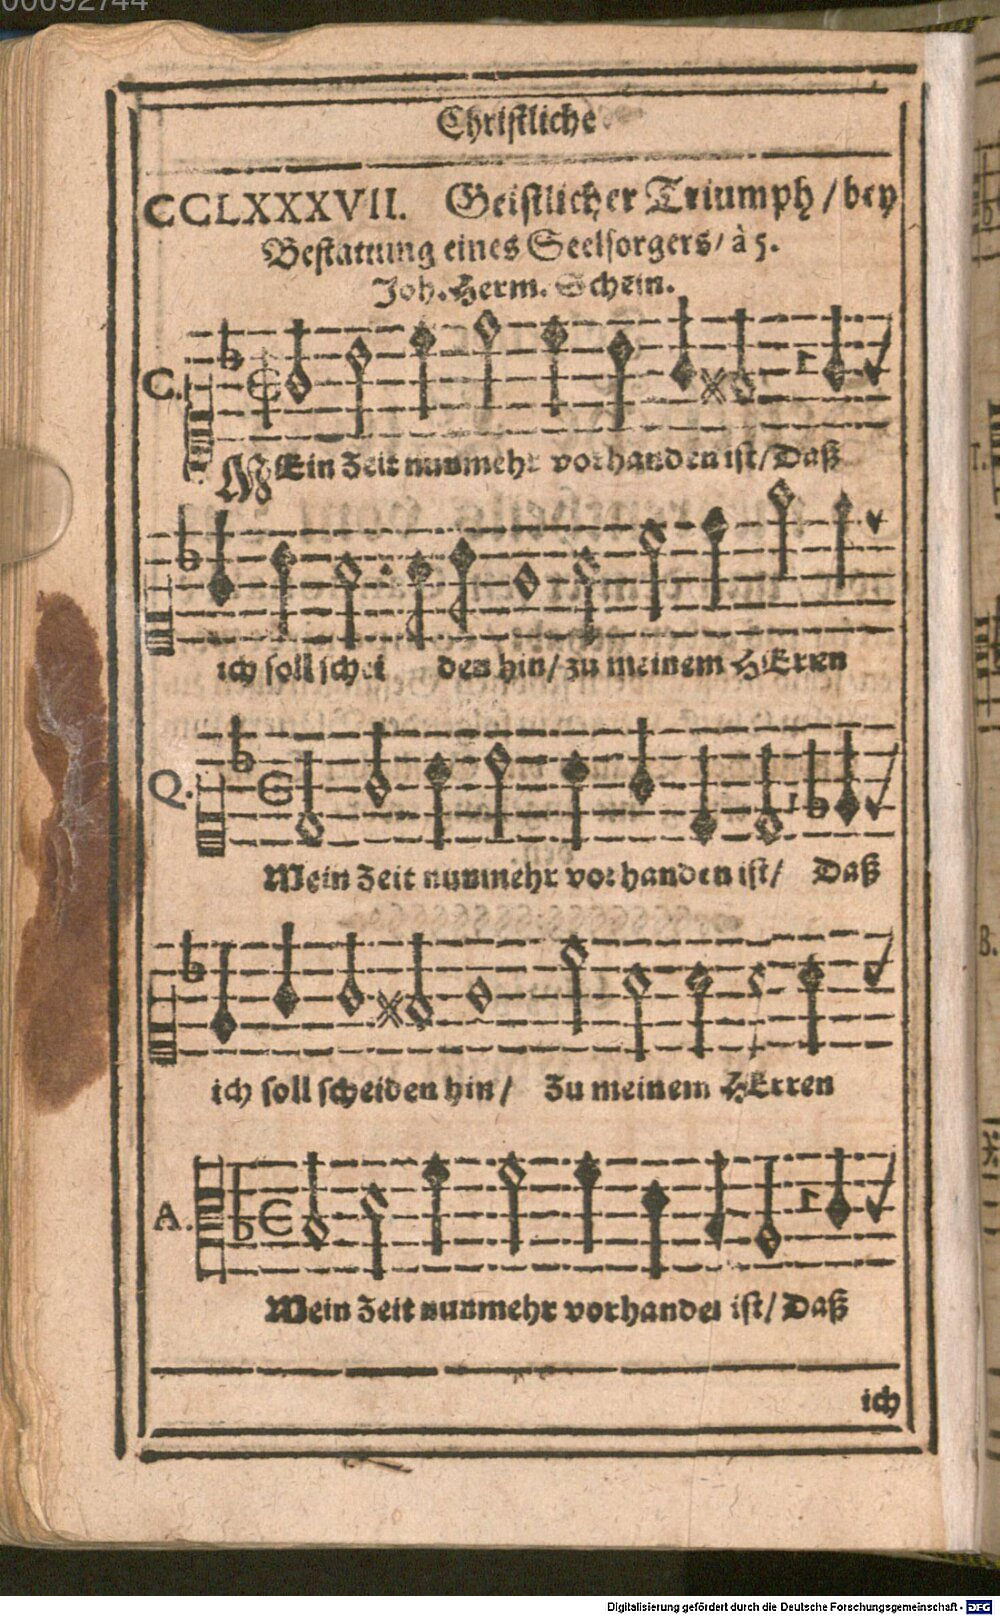 00092744
Christliche
CCLXXXVII. Geistlicher Triumph / bey
Bestattung eines Seelsorgers / à 5.
Joh. Herm. Schein.
C.
MEin Zeit nunmehr vorhanden ist / Daß
ich soll schei den hin / zu meinem HErren
Q.
Mein Zeit nunmehr vorhanden ist / Daß
ich soll scheiden hin / Zu meinem HErren
A.
Mein Zeit nunmehr vorhanden ist / Daß
ich
B.
Digitalisierung gefördert durch die Deutsche Forschungsgemeinschaft - DFG